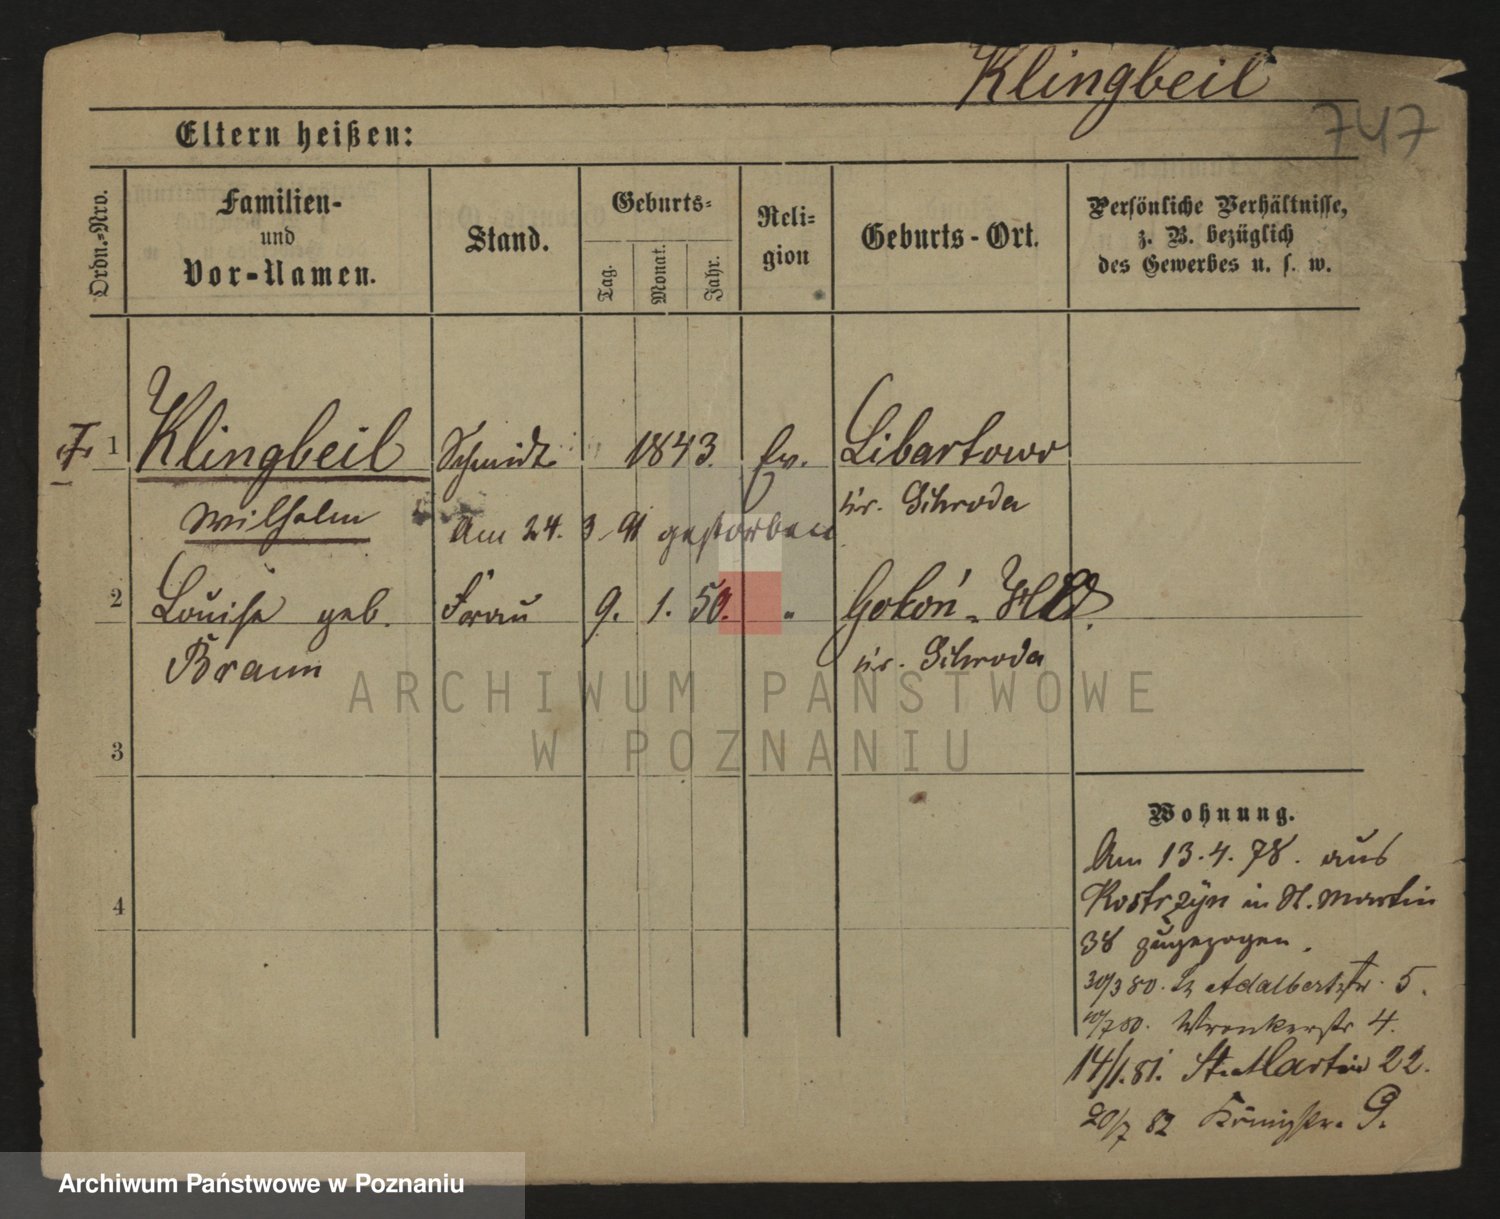 Klingbeil
747
Eltern heißen:
Ordn.-Nro.
Familien-
und
Vor-Namen.
Stand.
Geburts-
Tag.
Monat.
Jahr.
Reli-
gion
Geburts-Ort.
Persönliche Verhältnisse,
z. B. bezüglich
des Gewerbes u. s. w.
1 Klingbeil Schmidt 1843. Ev. Libartowo
Wilhelm
Kr. Schroda
Am 24. 3 91 gestorben
2 Louise geb. Frau 9. 1. 50. " Gokoń-Hld.
Braun
Kr. Schroda
3
4
Wohnung.
Am 13.4.78. aus
Kostrzyn in St. Martin
38 zugezogen.
30/3 80. St Adalbertstr. 5.
10/7 80. Wronkerstr 4.
14/1.81. St. Martin 22.
20/7 82 Königstr. 9.
ARCHIWUM PAŃSTWOWE
W POZNANIU
Archiwum Państwowe w Poznaniu